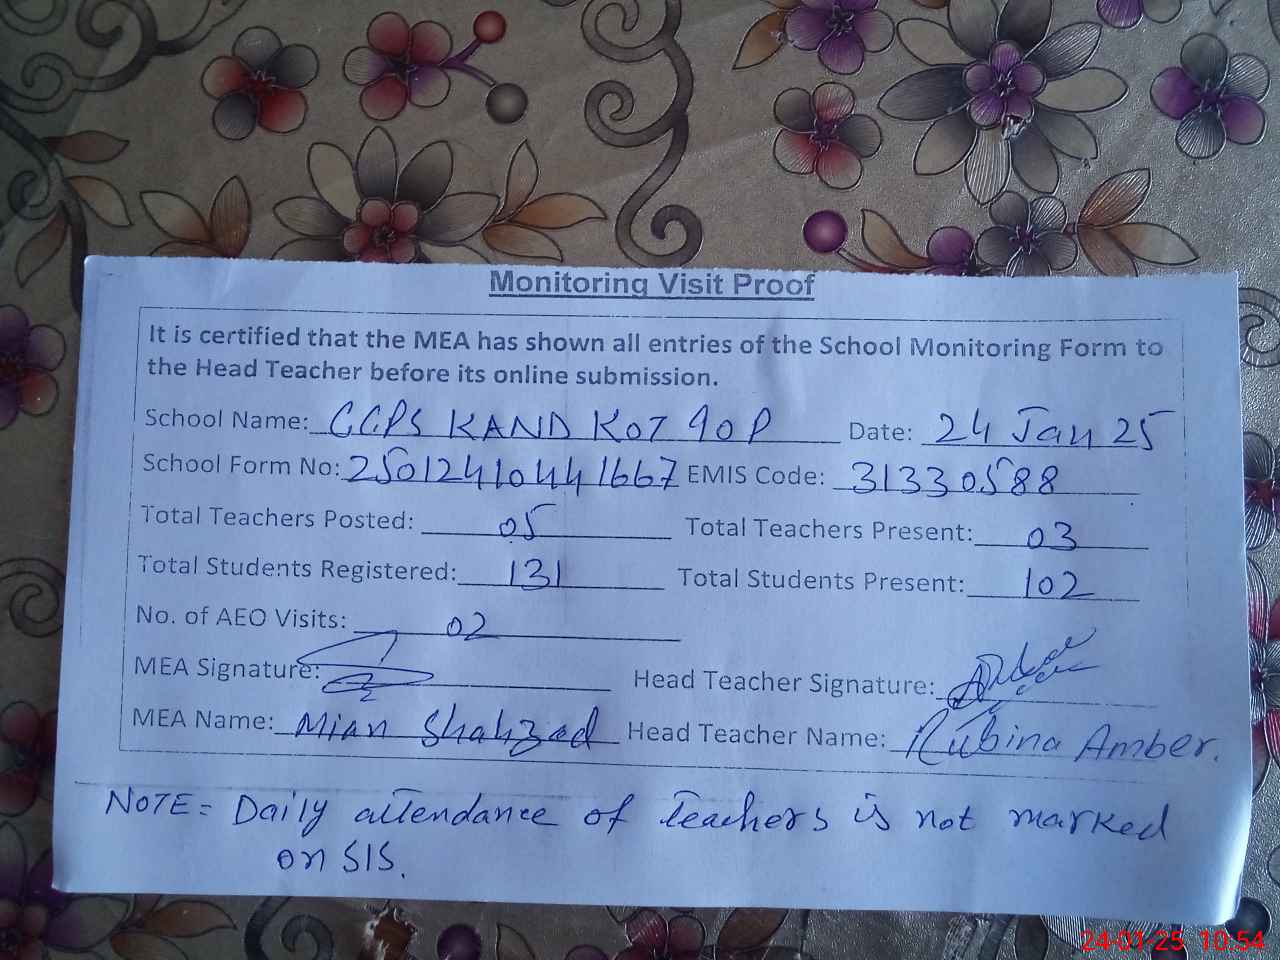 Monitoring Visit Proof
It is certified that the MEA has shown all entries of the School Monitoring Form to
the Head Teacher before its online submission.
School Name: GGPS KAND KOT 90P Date: 24 Jan 25
School Form No: 2501241044 1667 EMIS Code: 31330588
Total Teachers Posted: 05 Total Teachers Present: 03
Total Students Registered: 131 Total Students Present: 102
No. of AEO Visits: 02
MEA Signature: Head Teacher Signature:
MEA Name: Mian Shahzad Head Teacher Name: Rubina Amber.
NOTE = Daily attendance of teachers is not marked
on SIS.
24-01-25 10:54